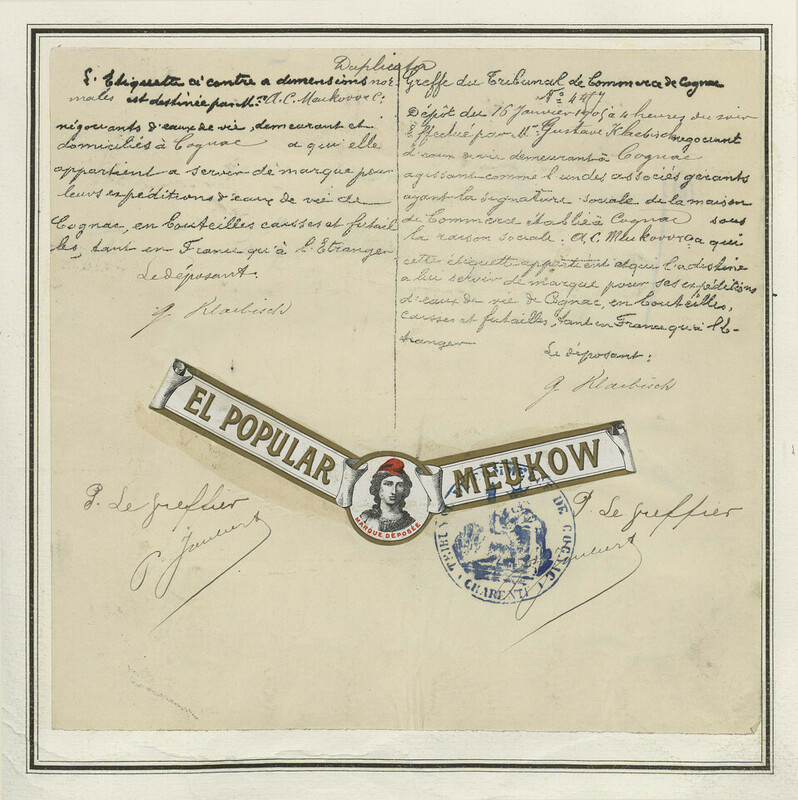 Duplicata
L'Etiquette ci contre a dimensions nor
males est destinée par Mrs A.C. Meukow & Cie
négociants d'eaux de vie, demeurant et
domiciliés à Cognac a qui elle
appartient a servir de marque pour
leurs expéditions d'eaux de vie de
Cognac, en bouteilles caisses et futail
les, tant en France qu'à l'Etranger.
Le déposant.
G. Klaebisch
Greffe du Tribunal de Commerce de Cognac
No 447
Dépôt du 16 Janvier à 4 heures du soir
Effectué par Mr Gustave Klaebisch négociant
d'eaux de vie demeurant à Cognac
agissant comme l'un des associés gérants
ayant la signature sociale de la maison
de Commerce établie à Cognac sous
la raison sociale. A.C. Meukow & Ca qui
cette étiquette appartient et qui l'a destine
a lui servir de marque pour ses expéditions
d'eaux de vie de Cognac, en bouteilles,
caisses et futailles, tant en France qu'à l'E-
tranger
Le déposant:
G. Klaebisch
EL POPULAR
MEUKOW
MARQUE DÉPOSÉE
P. Le Greffier
P. Joubert
P. Le Greffier
Joubert
DE COGNAC
(CHARENTE)